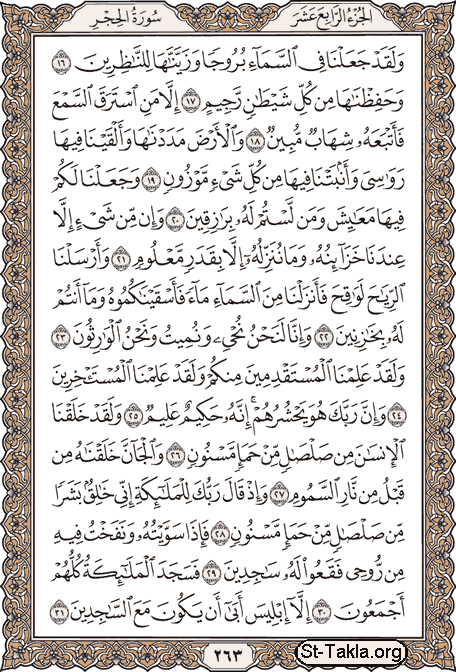 الجُزْءُ الرَّابِعَ عَشَرَ سُورَةُ الحِجْرِ
وَلَقَدْ جَعَلْنَا فِي ٱلسَّمَآءِ بُرُوجٗا وَزَيَّنَّٰهَا لِلنَّٰظِرِينَ ١٦
وَحَفِظْنَٰهَا مِن كُلِّ شَيْطَٰنٖ رَّجِيمٍ ١٧ إِلَّا مَنِ ٱسْتَرَقَ ٱلسَّمْعَ
فَأَتْبَعَهُۥ شِهَابٞ مُّبِينٞ ١٨ وَٱلْأَرْضَ مَدَدْنَٰهَا وَأَلْقَيْنَا فِيهَا
رَوَٰسِيَ وَأَنۢبَتْنَا فِيهَا مِن كُلِّ شَيْءٖ مَّوْزُونٖ ١٩ وَجَعَلْنَا لَكُمْ
فِيهَا مَعَٰيِشَ وَمَن لَّسْتُمْ لَهُۥ بِرَٰزِقِينَ ٢٠ وَإِن مِّن شَيْءٍ إِلَّا
عِندَنَا خَزَآئِنُهُۥ وَمَا نُنَزِّلُهُۥٓ إِلَّا بِقَدَرٖ مَّعْلُومٖ ٢١ وَأَرْسَلْنَا
ٱلرِّيَٰحَ لَوَٰقِحَ فَأَنزَلْنَا مِنَ ٱلسَّمَآءِ مَآءٗ فَأَسْقَيْنَٰكُمُوهُ وَمَآ أَنتُمْ
لَهُۥ بِخَٰزِنِينَ ٢٢ وَإِنَّا لَنَحْنُ نُحْيِۦ وَنُمِيتُ وَنَحْنُ ٱلْوَٰرِثُونَ ٢٣
وَلَقَدْ عَلِمْنَا ٱلْمُسْتَقْدِمِينَ مِنكُمْ وَلَقَدْ عَلِمْنَا ٱلْمُسْتَـْٔخِرِينَ
٢٤ وَإِنَّ رَبَّكَ هُوَ يَحْشُرُهُمْۚ إِنَّهُۥ حَكِيمٌ عَلِيمٞ ٢٥ وَلَقَدْ خَلَقْنَا
ٱلْإِنسَٰنَ مِن صَلْصَٰلٖ مِّنْ حَمَإٖ مَّسْنُونٖ ٢٦ وَٱلْجَآنَّ خَلَقْنَٰهُ مِن
قَبْلُ مِن نَّارِ ٱلسَّمُومِ ٢٧ وَإِذْ قَالَ رَبُّكَ لِلْمَلَٰٓئِكَةِ إِنِّي خَٰلِقُۢ بَشَرٗا
مِّن صَلْصَٰلٖ مِّنْ حَمَإٖ مَّسْنُونٖ ٢٨ فَإِذَا سَوَّيْتُهُۥ وَنَفَخْتُ فِيهِ
مِن رُّوحِي فَقَعُوا۟ لَهُۥ سَٰجِدِينَ ٢٩ فَسَجَدَ ٱلْمَلَٰٓئِكَةُ كُلُّهُمْ
أَجْمَعُونَ ٣٠ إِلَّآ إِبْلِيسَ أَبَىٰٓ أَن يَكُونَ مَعَ ٱلسَّٰجِدِينَ ٣١
٢٦٣
St-Takla.org